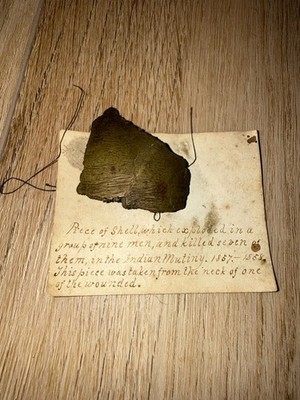 Piece of Shell, which exploded in a
group of nine men, and killed seven of
them, in the Indian Mutiny. 1857.–1858.
This piece was taken from the neck of one
of the wounded.